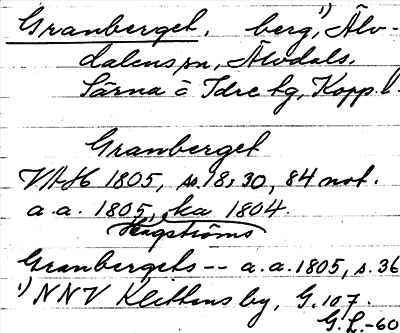 Granberget, berg,¹) Älv-
dalens sn, Älvdals,
Särna o Idre tg, Kopp. l.
Granberget
VAH 1805, ss. 18, 30, 84 not.
a.a. 1805, ka 1804.
Hagströms
Granbergets -- a.a. 1805, s. 36
¹) NNV Klittens by, G. 107.
G.L.-60